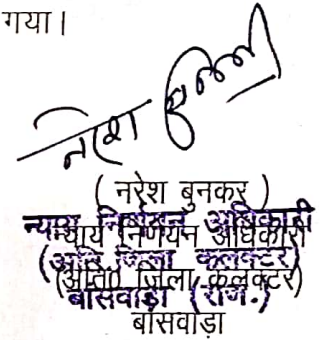 गया।
नरेश बुनकर
( नरेश बुनकर )
न्याय निर्णयन अधिकारी
न्याय निर्णयन अधिकारी
(अति. जिला कलक्टर)
(अति0 जिला कलक्टर)
बांसवाड़ा (राज.)
बांसवाड़ा